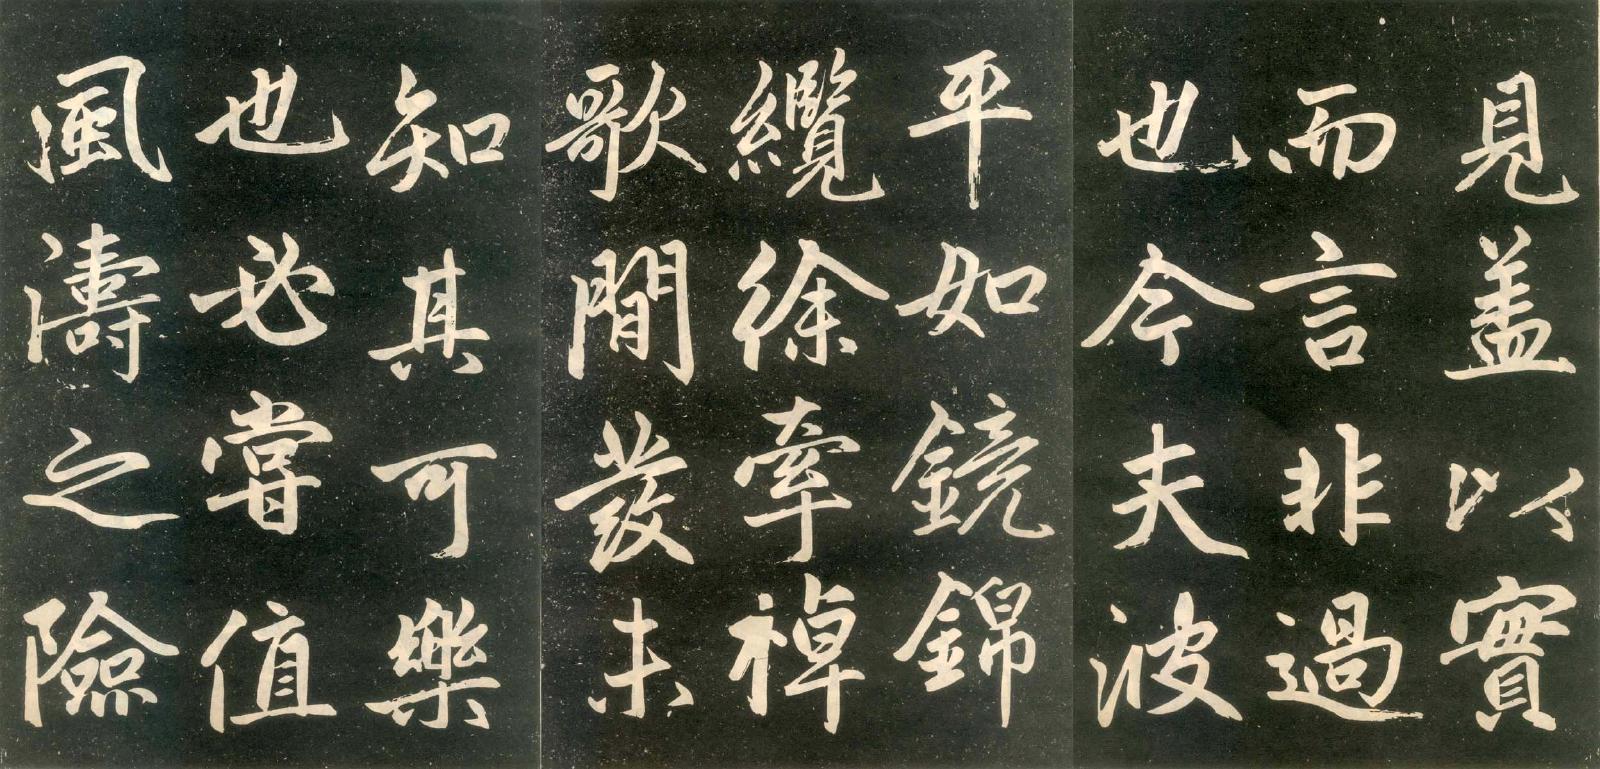 見盖以實
而言非過
也今夫波
平如鏡錦
纜徐牽棹
歌間發未
知其可樂
也必嘗值
風濤之險